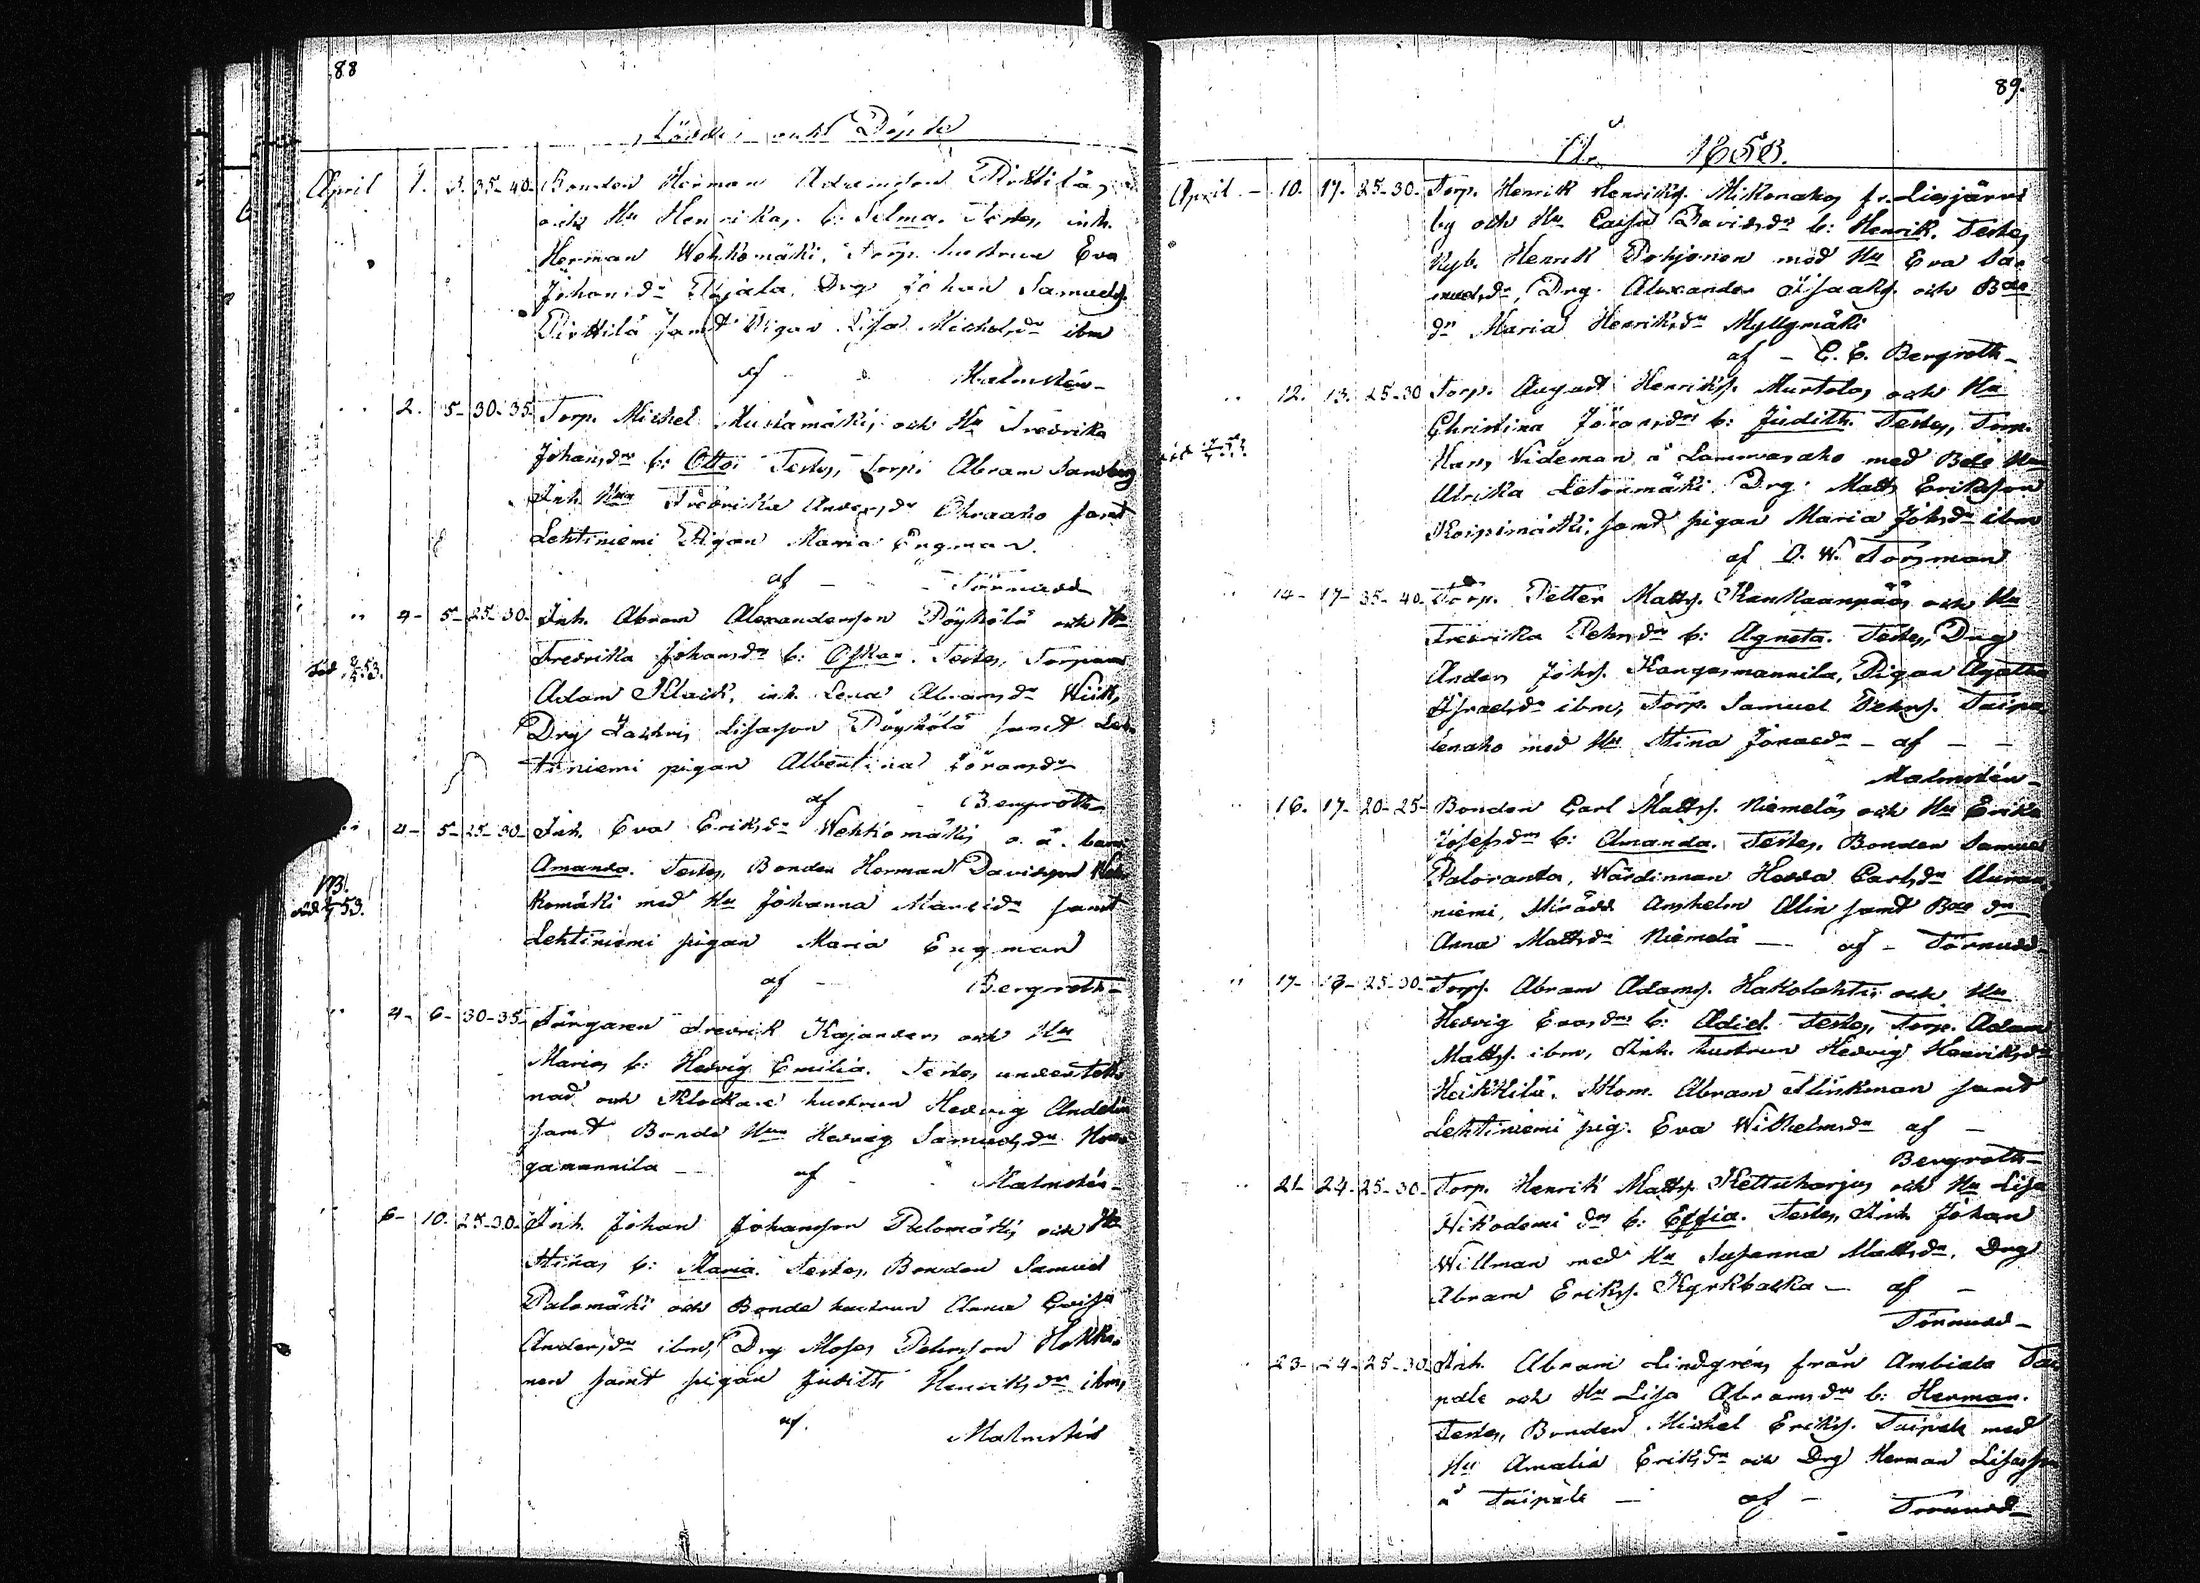 88
Födde och Döpte
April 1. 3. 35-40. Bonden Herman Adamsson Pirttilä,
och Hu Henrika, b: Selma. Testes, inh.
Herman Wehkomäki, Torp. hustrun Eva
Johansdr Eljala, Drg Johan Samuels.
Pirttilä samt Pigan Lisa Michelsdr ibm
af Malmstén
" 2. 5- 30-35. Torp. Michel Mustamäki, och Hu Fredrika
Johansdr b: Otto. Testes, Torp: Abram Sandberg
Inh. Hun Fredrika Andersdr Ohraaho samt
Lehtiniemi Pigan Maria Engman.
af Törnudd
" 4- 5- 25-30. Inh. Abram Alexandersson Pöyhölä och Hu
Fredrika Johansdr b: Oskar. Testes, Torparen
död 53. Adam Klaick, inh. Lena Abramsdr Wiik,
Drg Zachris Lisasson Pöyhölä samt Leh-
tiniemi pigan Albertina Göransdr
af Bergroth
4- 5- 25-30- Inh. Eva Eriksdr Wehkomäki, o. ä. barn
Amanda. Testes, Bonden Herman Davidsson Weh-
komäki med Hu Johanna Mariedr samt
död 53. Lehtiniemi pigan Maria Engman
af Bergroth
" 4- 6- 30-35- Färgaren Fredrik Kajander, och Hu
Maria, b: Hedvig Emilia. Testes underteck-
nad och Klockare hustrun Hedvig Andelin
samt Bonde Hun Hedvig Samuelsdr Kan-
gamannila af Malmstén
6- 10. 25-30- Inh. Johan Johansson Palomäki, och Hu
Stina, b: Maria. Testes, Bonden Samuel
Palomäki och Bonde hustrun Anna Caisa
Andersdr ibm, Drg Moses Pehrsson Hokka-
nen samt pigan Judith Henriksdr ibm,
af Malmstén
89.
År 1853.
April - 10. 17- 25-30- Torp. Henrik Henriks. Mikonaho, fr. Liesjärvi
by och Hu Caisa Davidsdr b: Henrik. Testes,
Nyb. Henrik Pohjonen med Hu Eva Sa-
muelsdr, Drg. Alexander Isaaks. och Bde
dr Maria Henriksdr Myllymäki
af - C. E. Bergroth
" 12. 13. 25-30 Torp. August Henriks. Murtola, och Hu
Christina Göransdr b: Judith. Testes, Torp.
Hans Wideman å Lammasaho med Bde Hu
Ulrika Letonmäki Drg. Matts Eriksson
Koipimäki, samt pigan Maria Johsdr ibm
af O. W. Forsman
" 14- 17- 35-40. Torp. Petter Matts. Kankaanpää, och Hu
Fredrika Pehrsdr b: Agneta. Testes, Drg
Anders Johs. Kangasmannila, Pigan Agatha
Israelsdr ibm, Torp. Samuel Pehrs. Taipa-
lenaho med Hu Stina Jonaedr - af -
Malmstén
" 16. 17- 20-25- Bonden Carl Matts. Niemelä, och Hu Erika
Josefsdr b: Amanda. Testes, Bonden Samuel
Paloranta, Wärdinnan Hedda Carlsdr Uuran-
niemi, Anshelm Alin samt Bde dr
Anna Mattsdr Niemelä - af - Törnudd
" 17- 18- 25-30- Torp. Abram Adams. Hakolahti, och Hu
Hedvig Evasdr b: Adiel. Testes, Torp. Adam
Matts. ibm, Inh. hustrun Hedvig Henriksdr
Heikkilä, Slom. Abram Flinkman samt
Lehtiniemi pig. Eva Wilhelmsdr af
Bergroth
" 21- 24- 25-30- Torp. Henrik Matts. Kettuharju, och Hu Lisa
Nikodemi dr b: Effia. Testes, Inh. Johan
Willman med Hu Susanna Mattsdr, Drg
Abram Eriks. Kyrkbacka - af
Törnudd
" 23- 24- 25-30. Inh. Abram Lindgrén, från Ambiala Tai-
pale och Hu Lisa Abramsdr b: Herman.
Testes, Bonden Michel Eriks. Taipale med
Hu Amalia Eriksdr och Drg Herman Lisasson
å Taipale - af - Törnudd